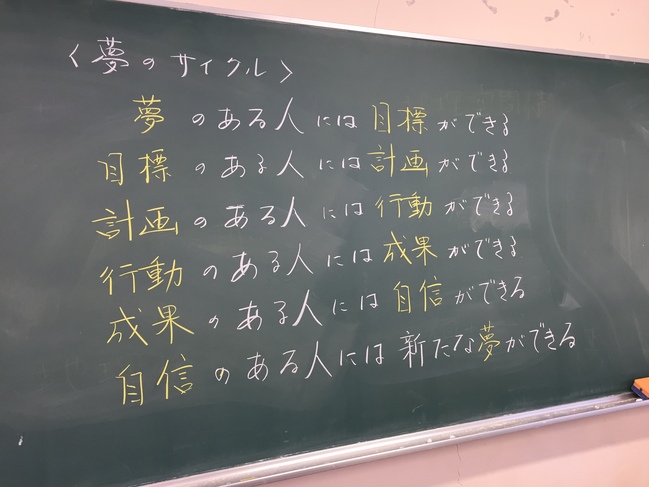 〈夢のサイクル〉
夢のある人には目標ができる
目標のある人には計画ができる
計画のある人には行動ができる
行動のある人には成果ができる
成果のある人には自信ができる
自信のある人には新たな夢ができる